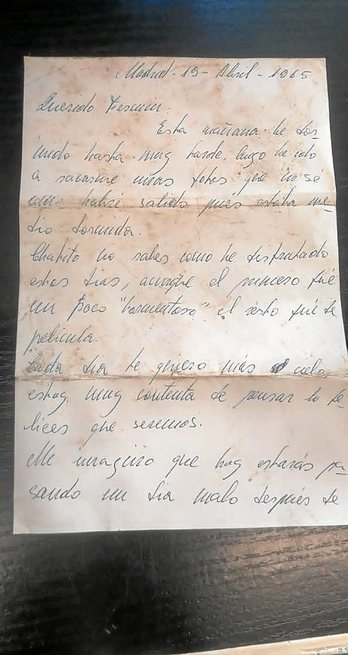 Madrid-19-Abril-1965
Querido Fermin.
Esta mañana he dor-
mido hasta muy tarde, luego he ido
a sacarme unas fotos que no sé
como habré salido pues estaba me-
dio dormida.
Chatito no sabes como he disfrutado
estos dias, aunque el primero fué
un poco "tormentoso" el resto fué de
pelicula.
Cada dia te quiero más cielo,
estoy muy contenta de pensar lo fe-
lices que seremos.
Me imagino que hoy estarás pa-
sando un dia malo después de